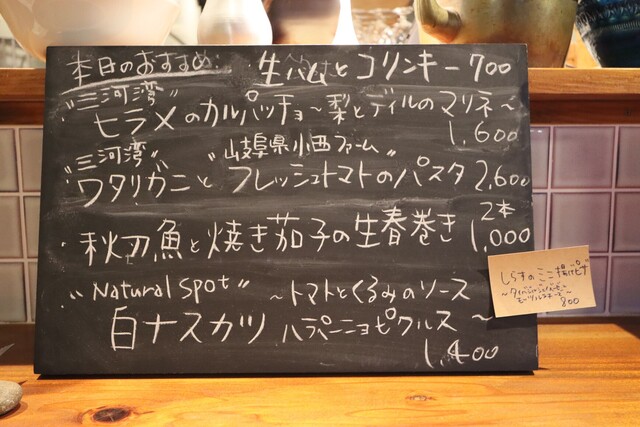 本日のおすすめ:
生ハムとコリンキー 700
"三河湾"
ヒラメのカルパッチョ〜梨とディルのマリネ〜
1,600
"三河湾" "岐阜県小西ファーム"
ワタリガニとフレッシュトマトのパスタ 2,600
・秋刀魚と焼き茄子の生春巻き 2本
1,000
"Natural Spot" 〜トマトとくるみのソース
白ナスカツ ハラペーニョピクルス〜
1,400
しらすのミニ揚げピザ
800